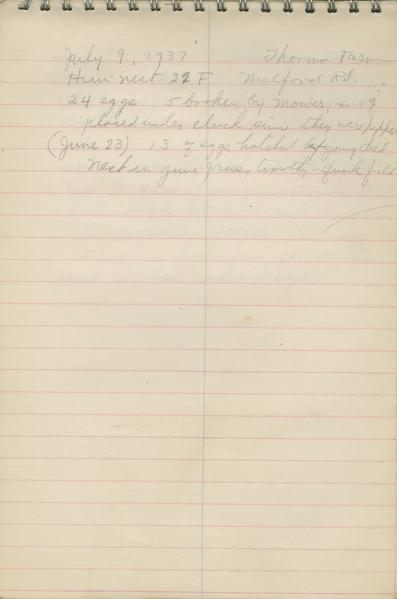 July 9, 1937 Thomas Farm
Hun nest 22 F Milford Rd.
24 eggs 5 broken by mower, & 19
placed under cluck since they were pipped
(June 23) 13 of eggs hatched young died
Nest in June grass, timothy - quack field